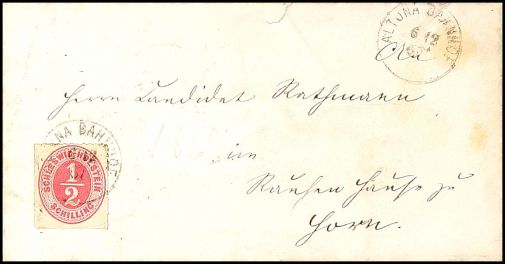 ALTONA BAHNHOF
6 12
An
Herrn Candidat Rathmann
im
Rauhen Hause zu
Horn.
NA BAHNHOF
SCHLESWIG-HOLSTEIN
1/2
SCHILLING